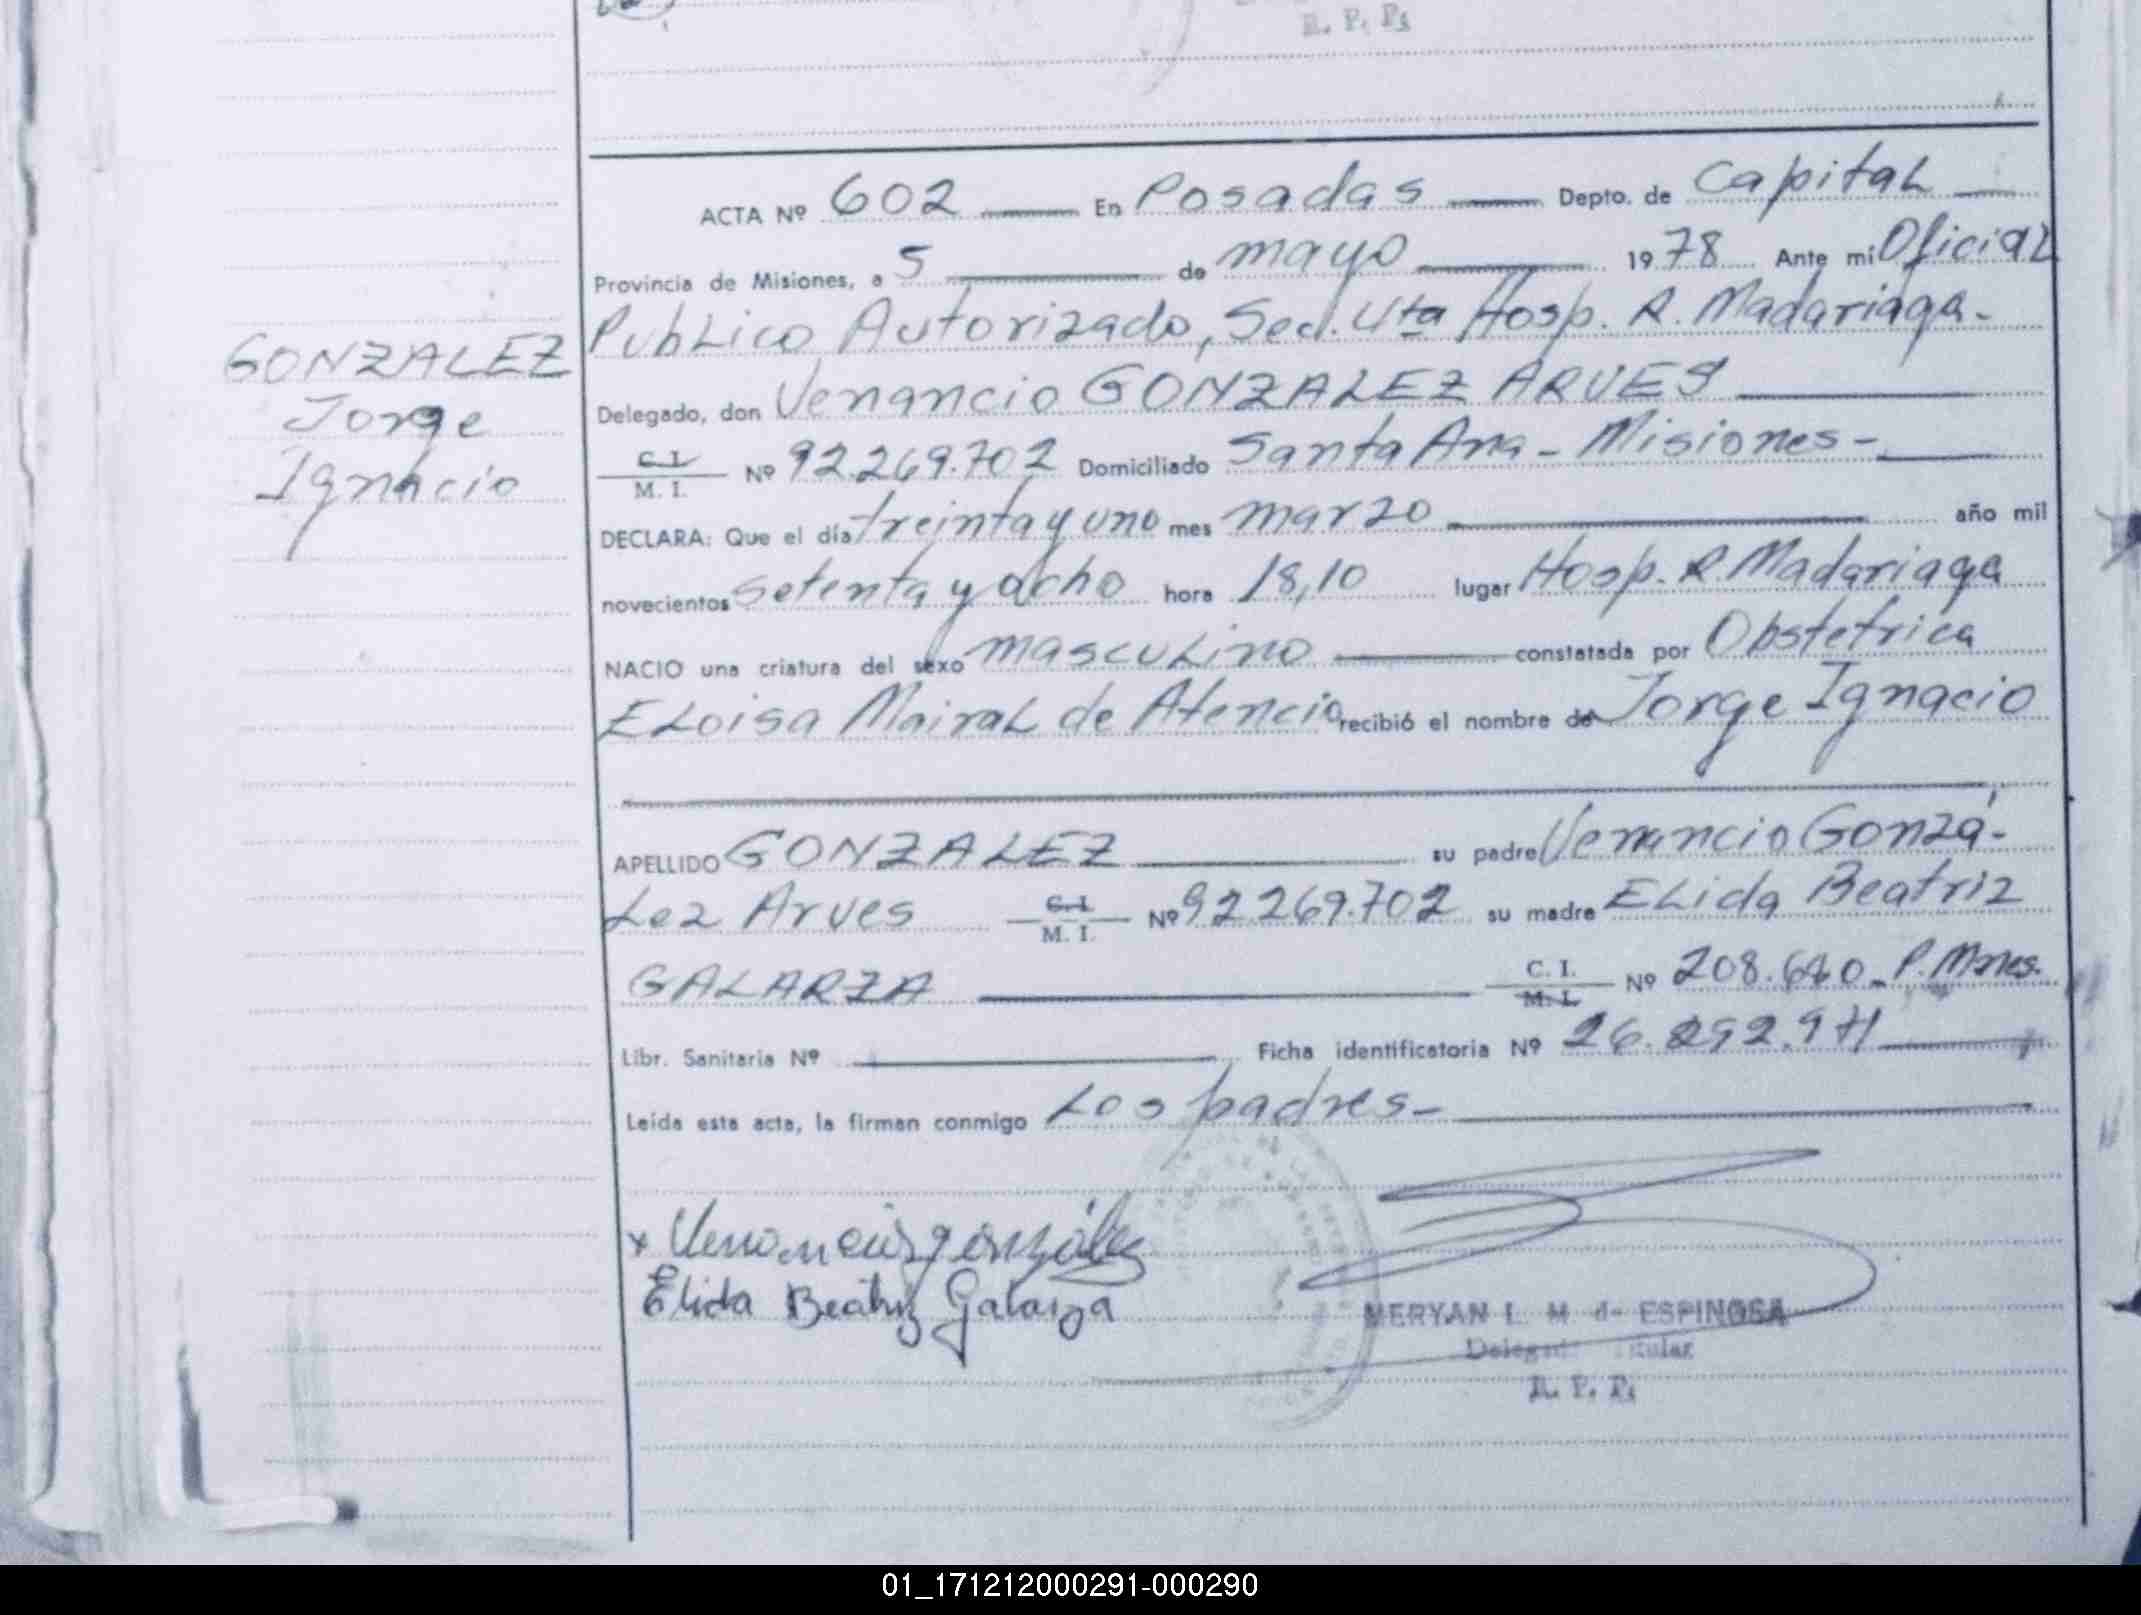 R. P. Ps
ACTA Nº 602 En Posadas Depto. de Capital
Provincia de Misiones, a 5 de mayo 1978 Ante mi Oficial
Publico Autorizado, Secc. 4ta Hosp. R. Madariaga.
GONZALEZ
Jorge
Ignacio
Delegado, don Venancio GONZALEZ ARVES
C. I.
M. I. Nº 92.269.702 Domiciliado Santa Ana - Misiones -
DECLARA: Que el día treinta y uno mes marzo año mil
novecientos setenta y ocho hora 18,10 lugar Hosp. R. Madariaga
NACIO una criatura del sexo masculino constatada por Obstetrica
Eloisa Mairal de Atencio recibió el nombre de Jorge Ignacio
APELLIDO GONZALEZ su padre Venancio Gonzá-
lez Arves C. I. M. I. Nº 92.269.702 su madre Elida Beatriz
GALARZA C. I. M. I. Nº 208.640 P. Mnes.
Libr. Sanitaria Nº Ficha identificatoria Nº 26.292.971
Leída esta acta, la firman conmigo Los padres -
x Venancio gonzález
Elida Beatriz Galarza
MERYAN L. M. de ESPINOSA
Delegada Titular
R. P. Ps
01_171212000291-000290